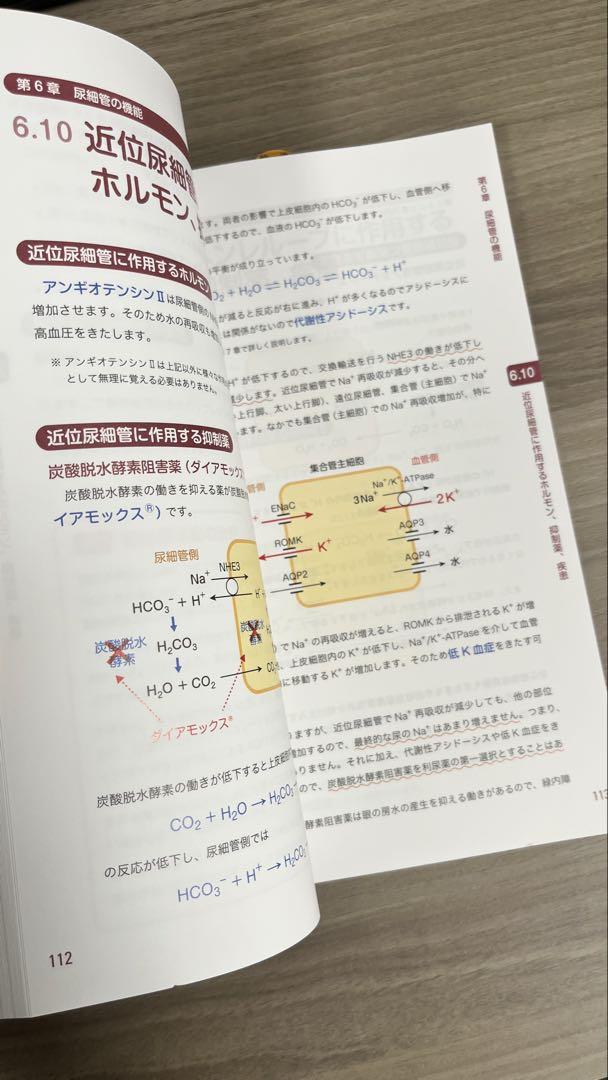 第6章 尿細管の機能
6.10 近位尿細管
ホルモン、
近位尿細管に作用するホルモン
アンギオテンシンⅡは尿細管側の
増加させます。そのため水の再吸収も
高血圧をきたします。
※ アンギオテンシンⅡは上記以外に様々な
として無理に覚える必要はありません。
近位尿細管に作用する抑制薬
炭酸脱水酵素阻害薬（ダイアモックス
炭酸脱水酵素の働きを抑える薬が炭酸
イアモックス®）です。
尿細管側
Na⁺ NHE3
HCO₃⁻ + H⁺ H⁺
炭酸脱水
酵素
H₂CO₃
炭酸脱水
酵素
H₂O + CO₂
ダイアモックス®
炭酸脱水酵素の働きが低下すると上皮細胞
CO₂ + H₂O → H₂CO₃
の反応が低下し、尿細管側では
HCO₃⁻ + H⁺ → H₂CO
112
第6章 尿細管の機能
ます。両者の影響で上皮細胞内のHCO₃⁻が低下し、血管側へ移
低下するので、血液のHCO₃⁻が低下します。
平衡が成り立っています。
O₂ + H₂O ⇌ H₂CO₃ ⇌ HCO₃⁻ + H⁺
が減ると反応が右に進み、H⁺が多くなるのでアシドーシスに
は関係がないので代謝性アシドーシスです。
7章で詳しく説明します。
H⁺が低下するので、交換輸送を行うNHE3の働きが低下し
減少します。近位尿細管でNa⁺再吸収が減少すると、その分ヘ
い上行脚、太い上行脚）、遠位尿細管、集合管（主細胞）でNa⁺
ます。なかでも集合管（主細胞）でのNa⁺再吸収増加が、特に
6.10
近位尿細管に作用するホルモン、抑制薬、疾患
管側
集合管主細胞
血管側
ENaC
Na⁺/K⁺-ATPase
3Na⁺
2K⁺
ROMK
K⁺
AQP3
水
AQP2
AQP4
水
）でNa⁺の再吸収が増えると、ROMKから排泄されるK⁺が増
、上皮細胞内のK⁺が低下し、Na⁺/K⁺-ATPaseを介して血管
に移動するK⁺が増加します。そのため低K血症をきたす可
りますが、近位尿細管でNa⁺再吸収が減少しても、他の部位
増加するので、最終的な尿のNa⁺はあまり増えません。つまり、
りません。それに加え、代謝性アシドーシスや低K血症をき
ので、炭酸脱水酵素阻害薬を利尿薬の第一選択とすることはあ
酵素阻害薬は眼の房水の産生を抑える働きがあるので、緑内障
113